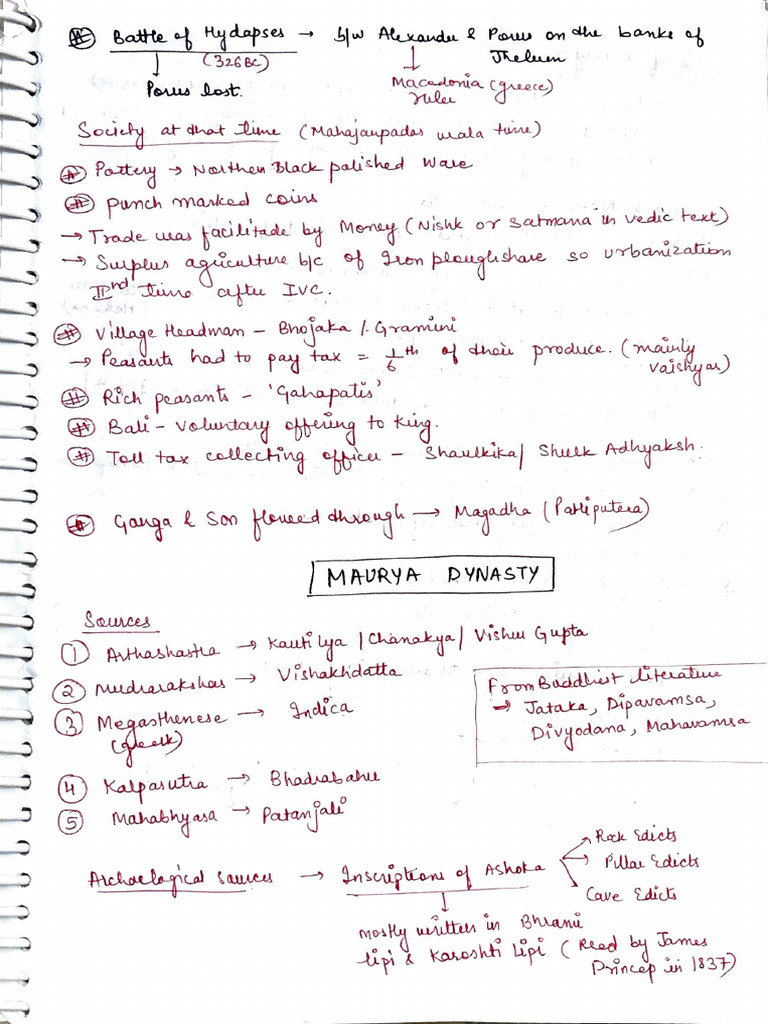 # Battle of Hydapses → b/w Alexander & Porus on the banks of
Jhelum
(326BC)
Porus lost.
Macedonia (greece)
ruler
Society at that time (Mahajanpadas wala time)
# Pottery → Northen Black polished ware
# Punch marked coins
→ Trade was facilitade by Money (Nishk or Satmana in vedic text)
→ Surplus agriculture b/c of Iron ploughshare so urbanization
IInd time after IVC.
# Village Headman - Bhojaka /. Gramini
→ Peasants had to pay tax = 1/6th of their produce. (mainly
vaishyas)
# Rich peasants - 'Gahapatis'
# Bali - voluntary offering to King.
# Toll tax collecting officer - Shaulkika/ Shulk Adhyaksh.
# Ganga & Son flowed through → Magadha (Patliputra)
MAURYA DYNASTY
Sources
① Arthashastra → Kautilya / Chanakya / Vishnu Gupta
② Mudrarakshas → Vishakhdatta
③ Megasthenese → Indica
(greek)
From Buddhist literature
→ Jataka, Dipavamsa,
Divyodana, Mahavamsa
④ Kalpasutra → Bhadrabahu
⑤ Mahabhyasa → Patanjali
Archaelogical sources → Inscriptions of Ashoka
Rock Edicts
Pillar Edicts
Cave Edicts
mostly written in Bhrami
lipi & Karoshti Lipi (Read by James
Princep in 1837)